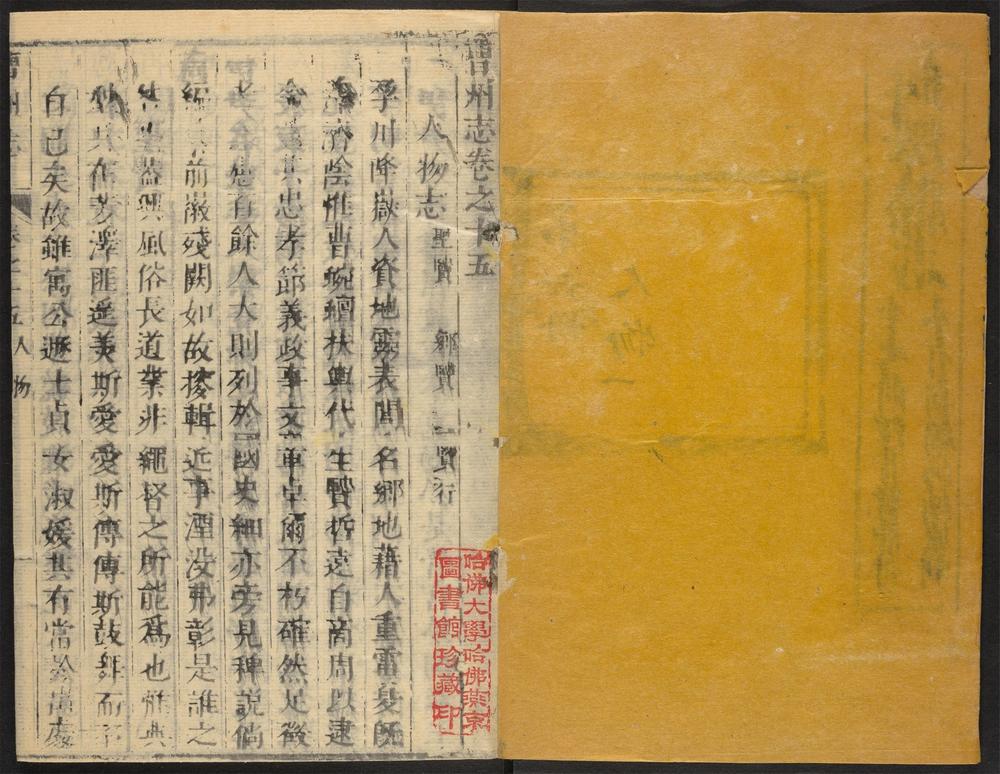 曹州志卷之十五
人物志 聖賢 鄉賢 賢行
孕川降嶽人資地靈表閭名鄉地藉人重雷夏既
濟陰惟曹蜿蟺扶輿代生賢哲遠自商周以逮
今其忠孝節義政事文章卓爾不朽確然足徵
者百餘人大則列於國史細亦旁見稗說倘
前徽殘闕如故掇輯近事湮没弗彰是誰之
蓋興風俗長道業非繩督之所能為也惟典
其在芳澤匪遥美斯愛愛斯傳傳斯鼓舞而不
自已矣故雖寓公遯士貞女淑媛其有當於
曹州志 卷之十五 人物 一
哈佛大學哈佛燕京
圖書館珍藏印
人物一